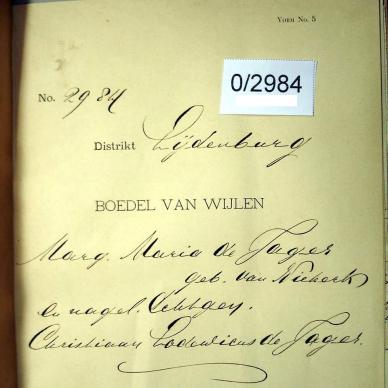 VORM No. 5
0/2984
No. 2984
Distrikt Lijdenburg
BOEDEL VAN WIJLEN
Marg. Maria de Jager
geb. van Niekerk
en nagel. Echtgen.
Christiaan Lodewicus de Jager.